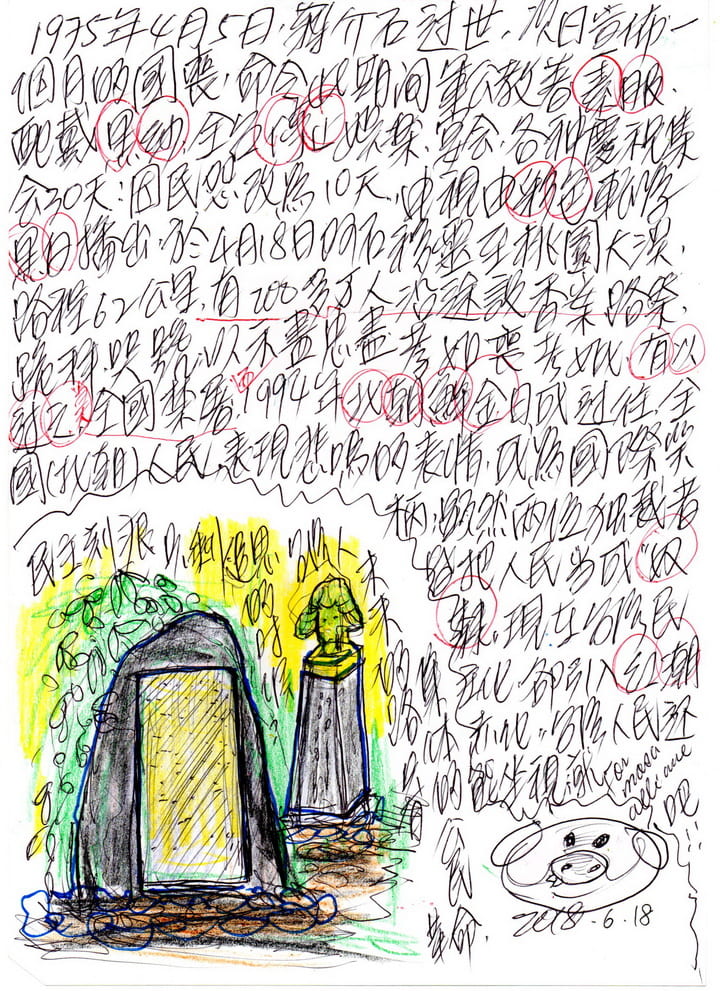 1975年4月5日,蔣介石過世,次日宣佈一
個月的國喪,命令此期間軍公教著素服,
配戴黑紗,全台停止娛樂、宴會、各種慶祝集
會30天;因民怨改為10天,電視由彩色轉為
黑白播出,於4月18日 移靈至桃園大溪,
路程62公里,有200多万人沿途設香案路祭,
跪拜哭號,以示盡忠盡孝如喪考妣,有以
過之,全國禁屠,1994年北朝鮮金日成過往,全
國(北朝)人民,表現悲鳴的表情,成為國際笑
柄;顯然兩位独裁者
皆把人民當成"奴
隸",現在台湾民
主化,卻引入紅潮
統,台湾人民还
能坐視
吧!!
民主到
公民
革命.
For
mosa
alliance
2018.6.18